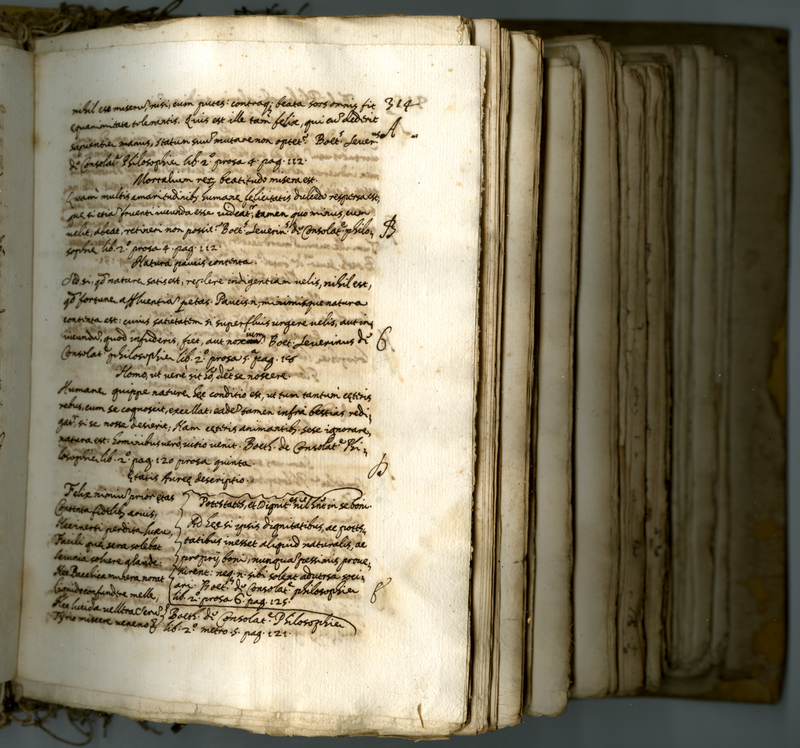 nihil est miseru, nisi, cum putes: contraq; beata sors omnis fit 314
equanimitate tolerantis. Quis est ille tam felix, qui cu dederit A
sapientiæ manus, statum suu mutare non optet. Boet. Sever.
de Consolat. Philosophiæ lib. 2.º prosa 4. pag. 112.
Mortalium beatitudo misera est.
Quam multis amaritudinib. humanæ felicitatis dulcedo respersa est,
quæ si etia fruenti iucunda esse uideat, tamen quo minus, cum
uelit, abeat, retineri non possit. Boet. Severin. de Consolat. philo- B
sophiæ lib. 2.º prosa 4. pag. 112.
Natura paucis contenta.
Sed si, qd naturæ satis est, replere indigentiam uelis, nihil est,
qd fortunæ affluentia petas. Paucis n. minimisque natura
contenta est: cuius satietatem si superfluis urgere uelis, aut in-
iucundu, quod infuderis, fiet, aut noxium. Boet. Severinus de C
Consolat. philosophiæ lib. 2.º prosa 5. pag. 118
Homo, ut uere sit ho, det se noscere.
Humanæ quippe naturæ hæc conditio est, ut tum tantum cæteris
rebus, cum se cognoscit, excellat: eade tamen infra bestias redi-
gat, si se nosse desierit. Nam cæteris animantib. sese ignorare,
natura est: hominibus uero uitio uenit. Boeth. de Consolat. Phi-
losophiæ lib. 2.º pag. 120 prosa quinta. D
Ætatis Aureæ descriptio.
Felix nimiu prior ætas
Contenta fidelib. aruis;
Nec inerti perdita luxu,
Facili quæ sera solebat
Ieiunia soluere glande.
Nec Bacchica munera norat
Liquido confundere melle,
Nec lucida uellera Seru
Tyrio miscere ueneno &
Boeth. de Consolat. Philosophiæ
lib. 2.º metro 5. pag. 121.
Potestatib, et Dignit nil inest in se boni.
Ad hæc si ipsis dignitatibus, ac potes-
tatibus inesset aliquid naturalis, ac
proprij boni, nunqua pessimis proue-
nirent: neq. n. sibi solent aduersa soci-
ari. Boet. de Consolat. philosophiæ E
lib. 2.º prosa 6. pag. 125.